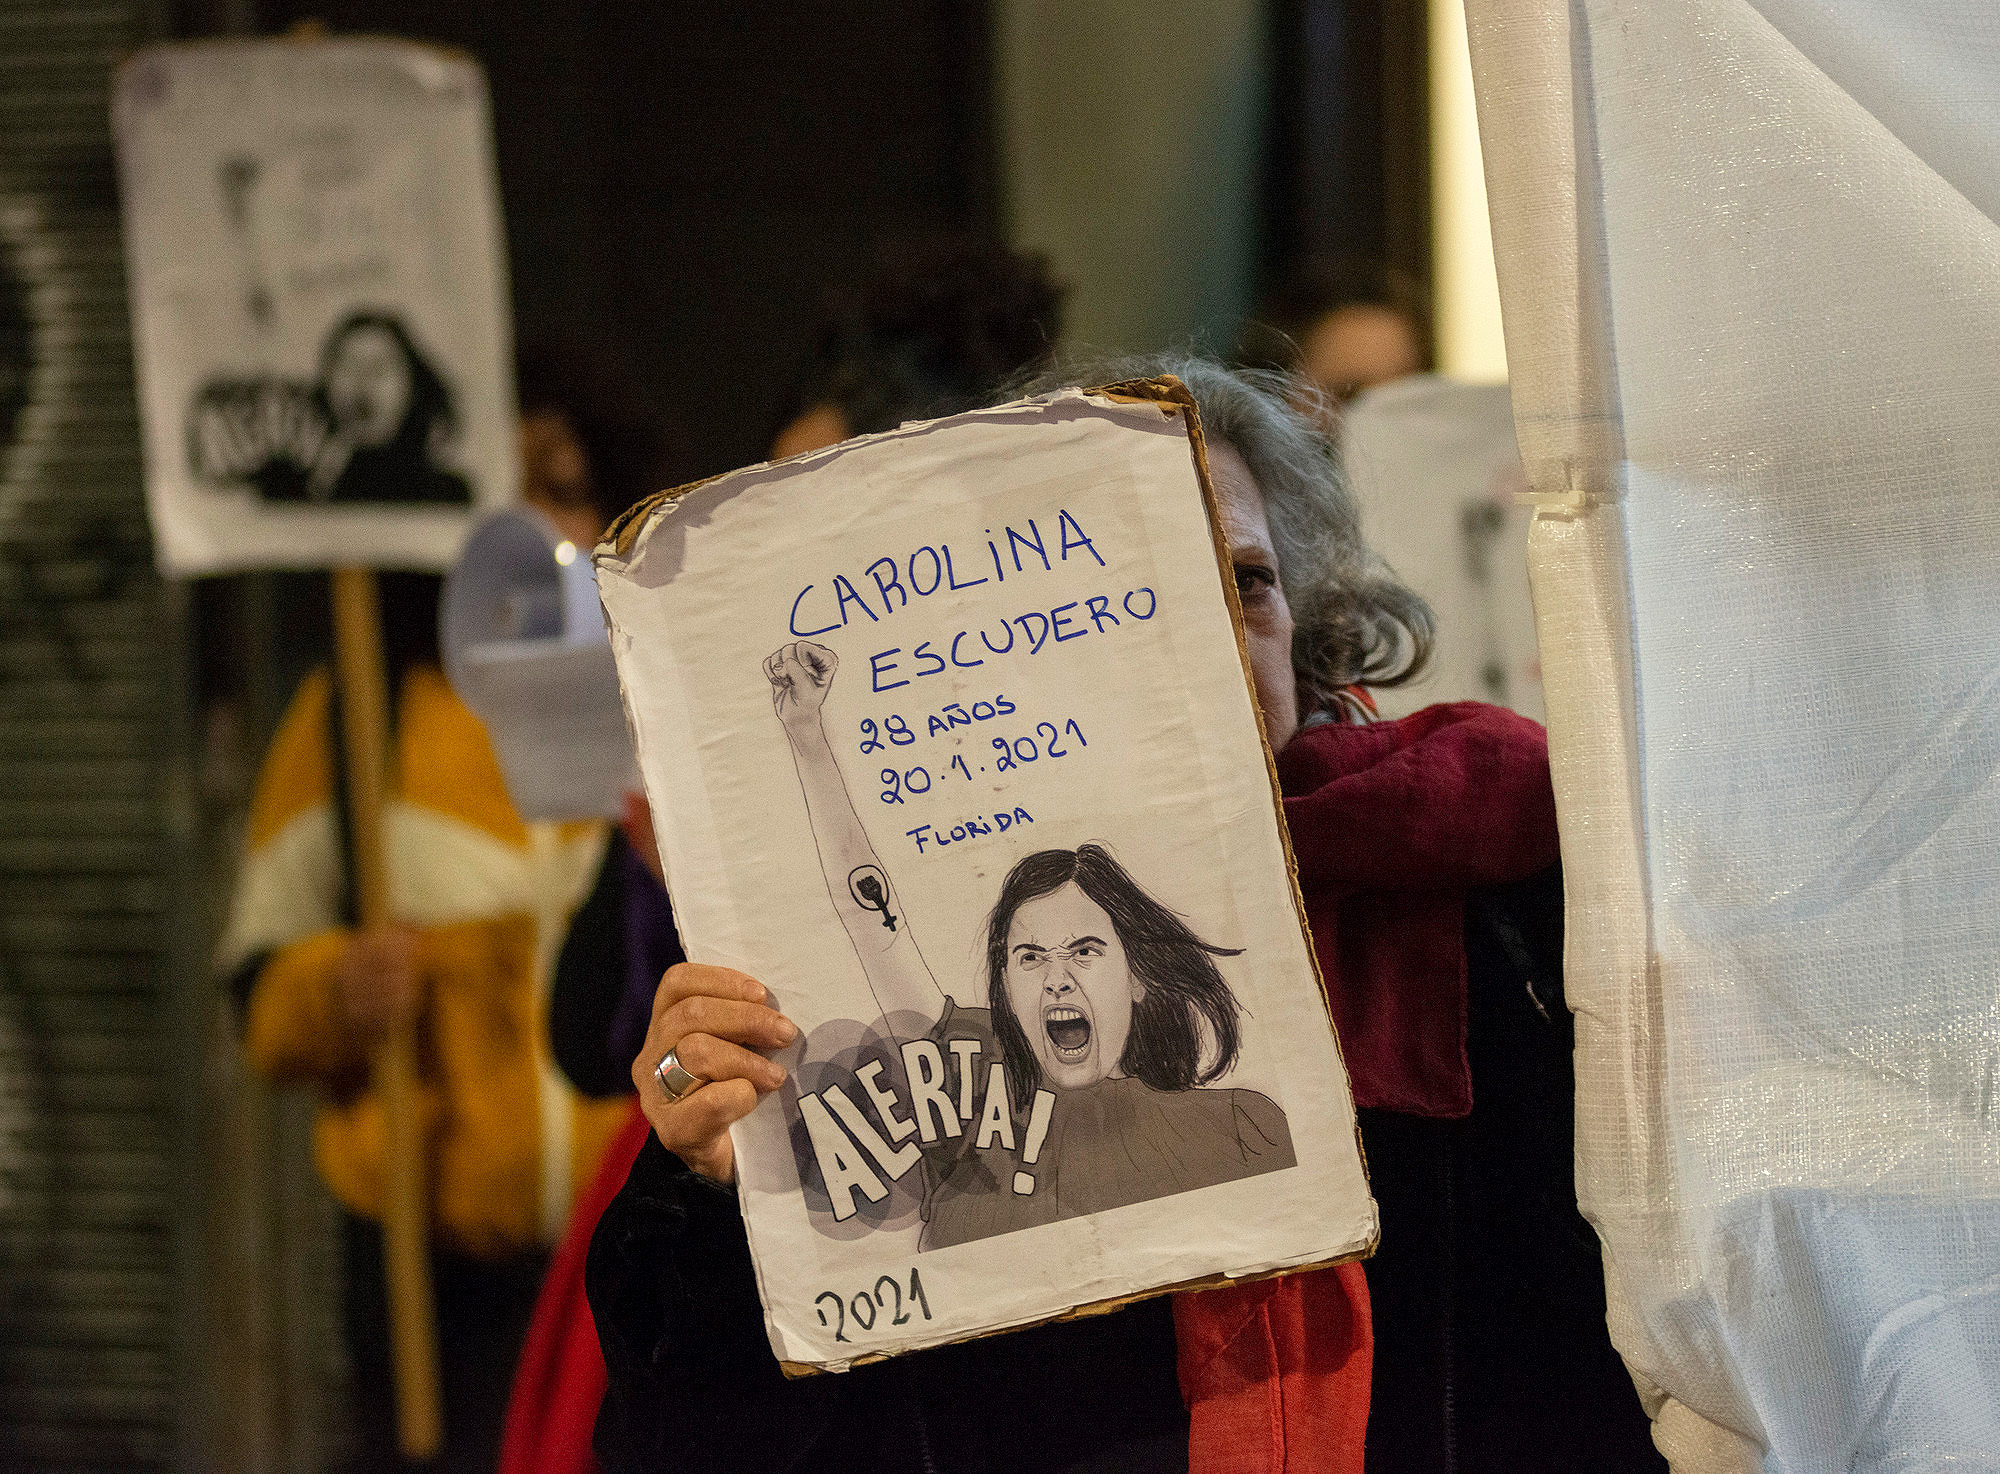 CAROLINA
ESCUDERO
28 AÑOS
20.1.2021
FLORIDA
ALERTA!
2021